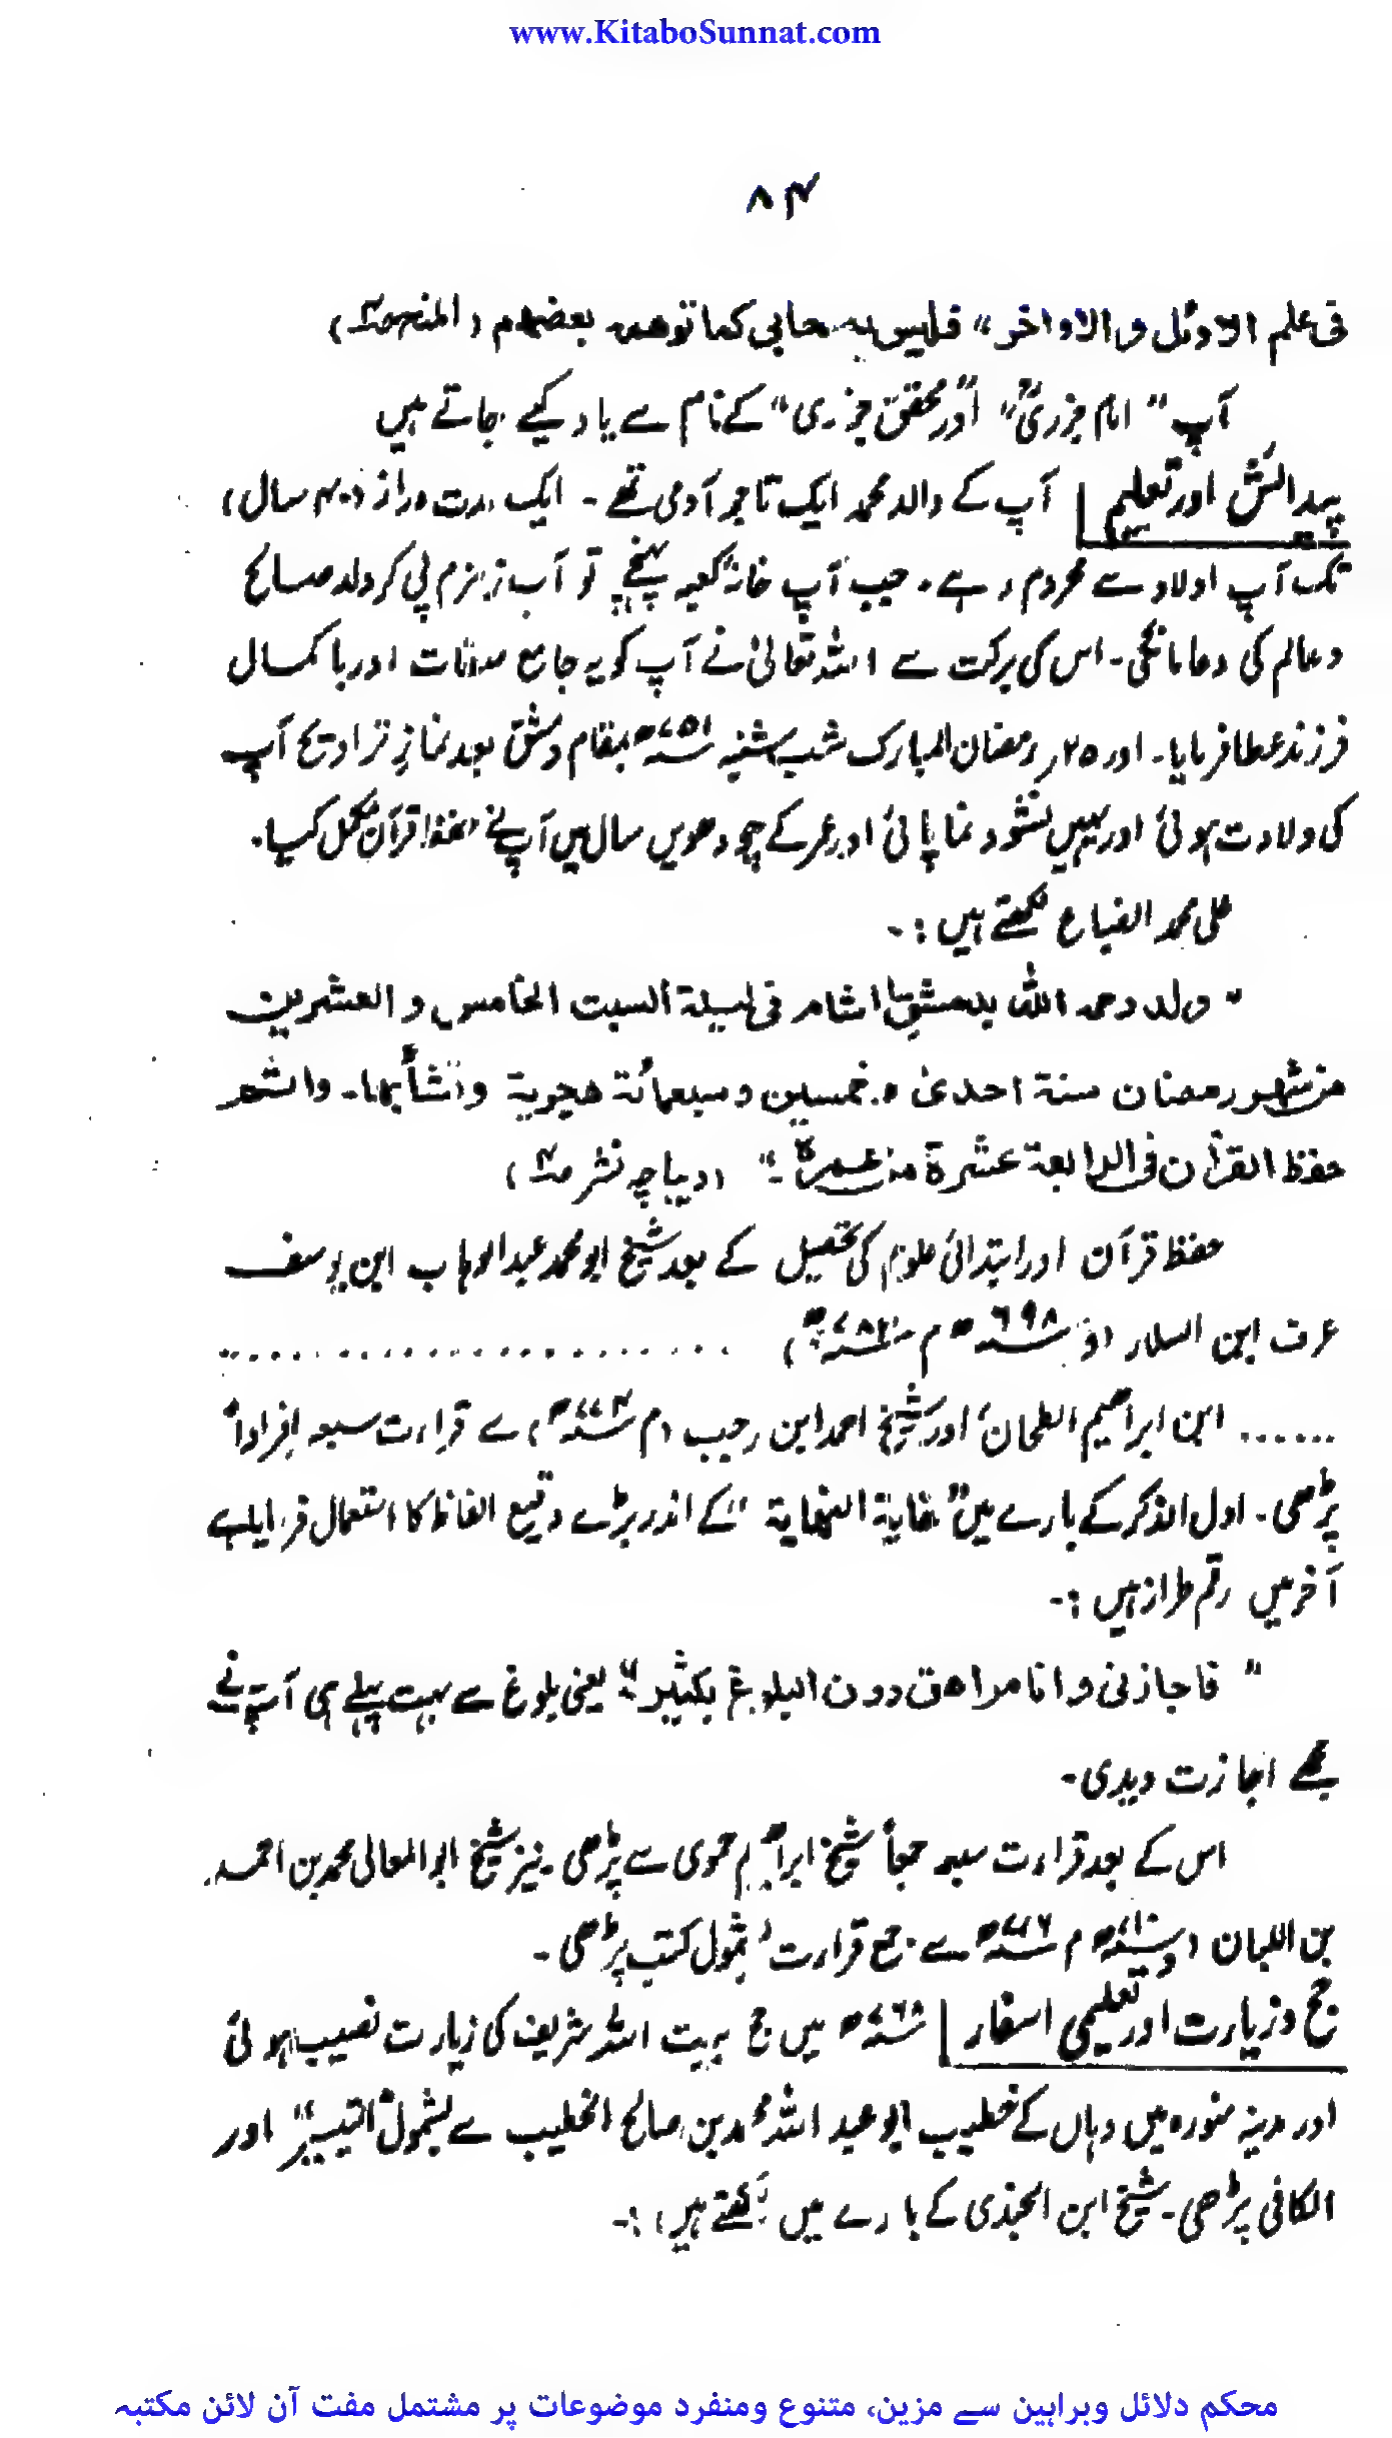 www.KitaboSunnat.com
۸۴
فی علم الاوئل والاواخر“ فلیس بہ صحابی کما توھمہ بعضھم (المنح ص۴)
آپ ”امام جزریؒ“ اور ”محقق جزری“ کے نام سے یاد کیے جاتے ہیں
پیدائش اور تعلیم آپ کے والد محمد ایک تاجر آدمی تھے۔ ایک مدت دراز (۴۰ سال)
تک آپ اولاد سے محروم رہے۔ جب آپ خانۂ کعبہ پہنچے تو آب زمزم پی کر ولد صالح
و عالم کی دعا مانگی۔ اس کی برکت سے اللہ تعالیٰ نے آپ کو یہ جامع صفات اور باکمال
فرزند عطا فرمایا۔ اور ۲۵ر رمضان المبارک شب شنبہ ۷۵۱ھ بمقام دمشق بعد نماز تراویح آپ
کی ولادت ہوئی اور یہیں نشوونما پائی اور عمر کے چودھویں سال میں آپ نے حفظ قرآن مکمل کیا۔
علی محمد الضباع لکھتے ہیں :۔
” ولد رحمہ اللہ بدمشق الشام فی لیلۃ السبت الخامس والعشرین
من شھر رمضان سنۃ احدیٰ و خمسین و سبعمائۃ ھجریۃ و نشأ بھا۔ و اتم
حفظ القرآن فی الرابعۃ عشرۃ من عمرہ۔“ (دیباچہ نشر ص۴)
حفظ قرآن اور ابتدائی علوم کی تحصیل کے بعد شیخ ابو محمد عبدالوہاب ابن یوسف
عرف ابن السلار (و ۶۹۸ھ م ۷۸۲ھ) ......................
...... ابن ابراھیم الطحان اور شیخ احمد ابن رجب (م ۷۷۴ھ) سے قراءت سبعہ افراداً
پڑھی۔ اول الذکر کے بارے میں ”غایۃ النھایۃ“ کے اندر بڑے وقیع الفاظ کا استعمال فرمایا ہے
آخر میں رقم طراز ہیں :۔
” فاجازنی وانا مراھق دون البلوغ بکثیر“ یعنی بلوغ سے بہت پہلے ہی آپ نے
مجھے اجازت دیدی۔
اس کے بعد قراءت سبعہ جمعاً شیخ ابراہیم حموی سے پڑھی۔ نیز شیخ ابوالمعالی محمد بن احمد
بن اللبان (و ۷۱۰ھ م ۷۷۶ھ) سے جمع قراءت بشمول کتب پڑھی۔
حج و زیارت اور تعلیمی اسفار ۷۶۸ھ میں حج بیت اللہ شریف کی زیارت نصیب ہوئی
اور مدینہ منورہ میں وہاں کے خطیب ابو عبد اللہ محمد بن صالح الخطیب سے بشمول ”التیسیر“ اور
الکافی پڑھی۔ شیخ ابن الجزری کے بارے میں لکھتے ہیں :۔
محکم دلائل وبراہین سے مزین، متنوع ومنفرد موضوعات پر مشتمل مفت آن لائن مکتبہ